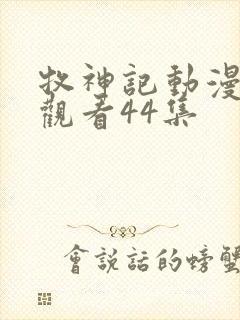 牧神記動漫
觀看44集
會說話的螃蟹